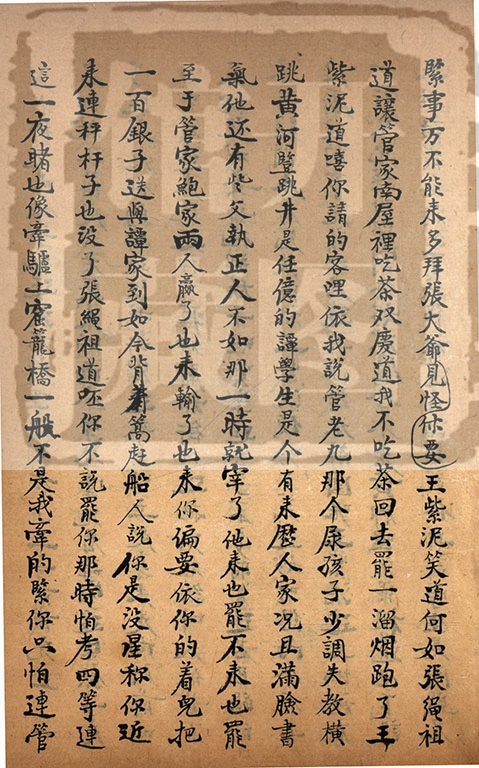 緊事万不能耒多拜張大爺見怪休要王紫泥笑道何如張繩祖
道讓管家南屋裡吃茶双慶道我不吃茶回去罷一溜烟跑了王
紫泥道嘻你請的客哩依我說管老九那个尿孩子少調失教橫
跳黃河竪跳井是任億的譚學生是个有耒歷人家况且滿臉書
氣他还有些父執正人不如那一時就宰了他耒也罷不耒也罷
至于管家鮑家兩人贏了也耒輸了也耒你偏要依你的着兒把
一百銀子送與譚家到如今背着篙赶船人說你是没星秤你近
耒連秤杆子也没了張繩祖道呸你不說罷你那時怕考四等連
這一夜賭也像牽驢上窟籠橋一般不是我牽的緊你只怕連管